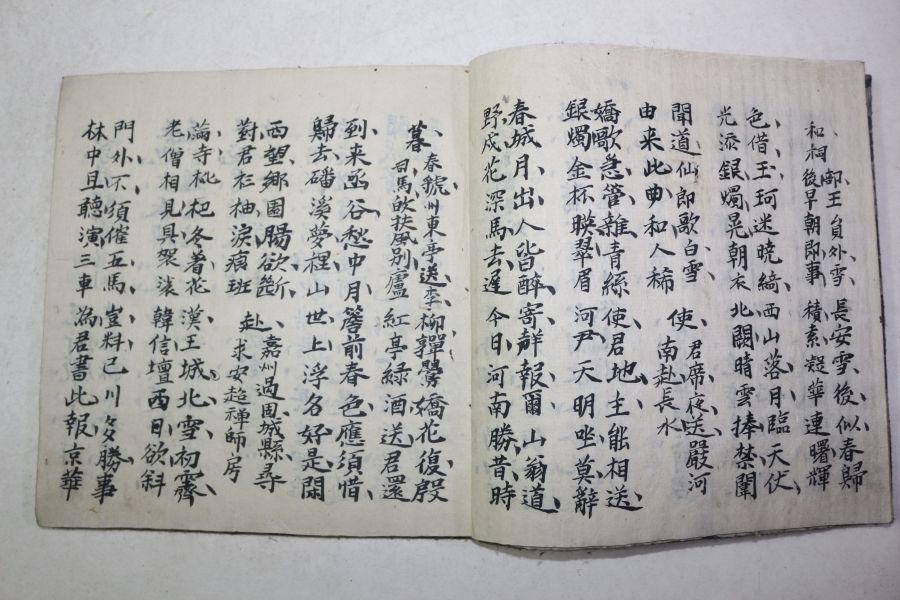 和祠御王員外雪 長安雪後似春歸
後早朝即事 積素凝華連曙輝
色借玉珂迷曉綺 西山落月臨天伏
光添銀燭晃朝衣 北闕晴雲捧禁闈
聞道仙郎歌白雪 使君席夜送嚴河
由來此曲和人稀 南赴長水
嬌歌急管雜青絲 使君地主能相送
銀燭金杯映翠眉 河尹天明坐莫辭
春城月出人皆醉 寄群報爾山翁道
野戍花深馬去遲 今日河南勝昔時
暮春虢州東亭送李 柳嚲鶯嬌花復殷
司馬故扶風別廬 紅亭綠酒送君還
到來函谷愁中月 簷前春色應須惜
歸去磻溪夢裡山 世上浮名好是閑
西望鄉園腸欲斷 赴嘉州過固城縣尋
對君衫袖淚痕斑 求安超禪師房
滿寺枇杷冬著花 漢王城北雪初霽
老僧相見具袈裟 韓信壇西日欲斜
門外不須催五馬 豈料巴川多勝事
林中且聽演三車 為君書此報京華